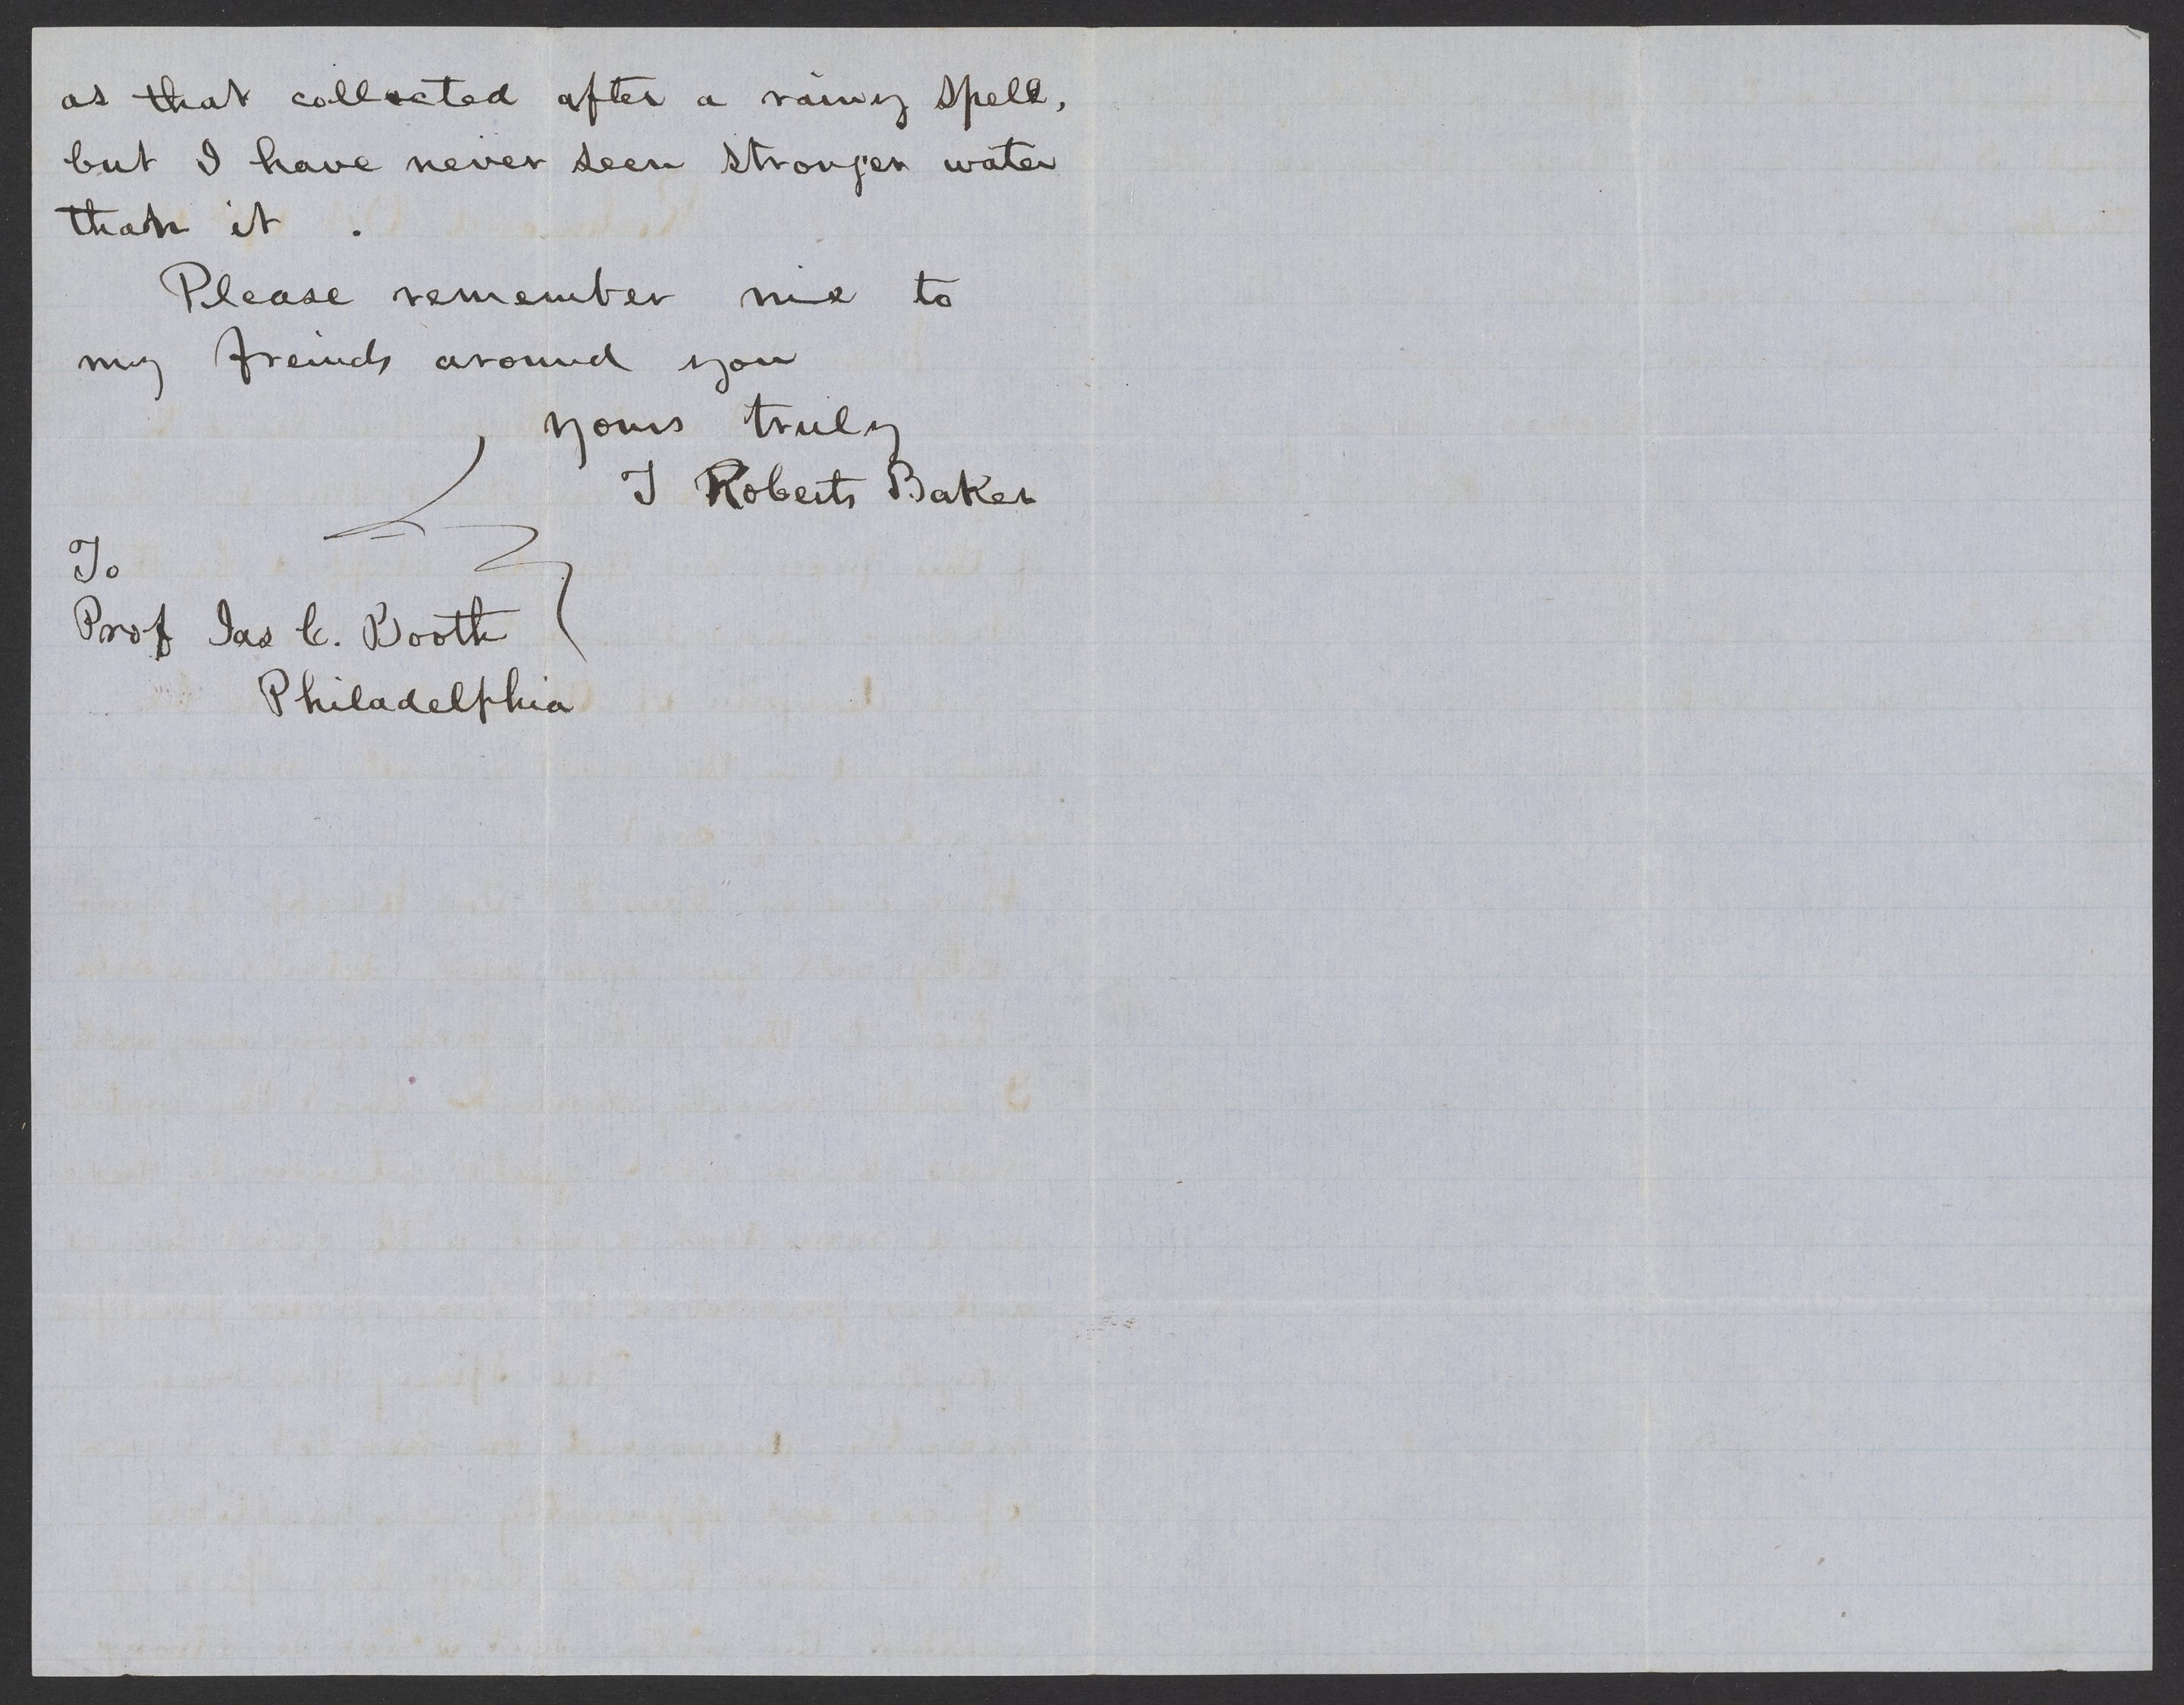 as that collected after a rainy spell,
but I have never seen stronger water
than it .
Please remember me to
my freinds around you
yours truly
T Roberts Baker
To
Prof Jas C. Booth
Philadelphia